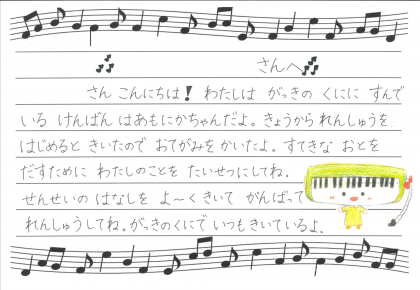 さんへ
さん こんにちは！ わたしは がっきの くにに すんで
いる けんばん はあもにかちゃんだよ。きょうから れんしゅうを
はじめると きいたので おてがみを かいたよ。すてきな おとを
だすために わたしのことを たいせつにしてね。
せんせいの はなしを よ〜く きいて がんばって
れんしゅうしてね。がっきのくにで いつもきいているよ。